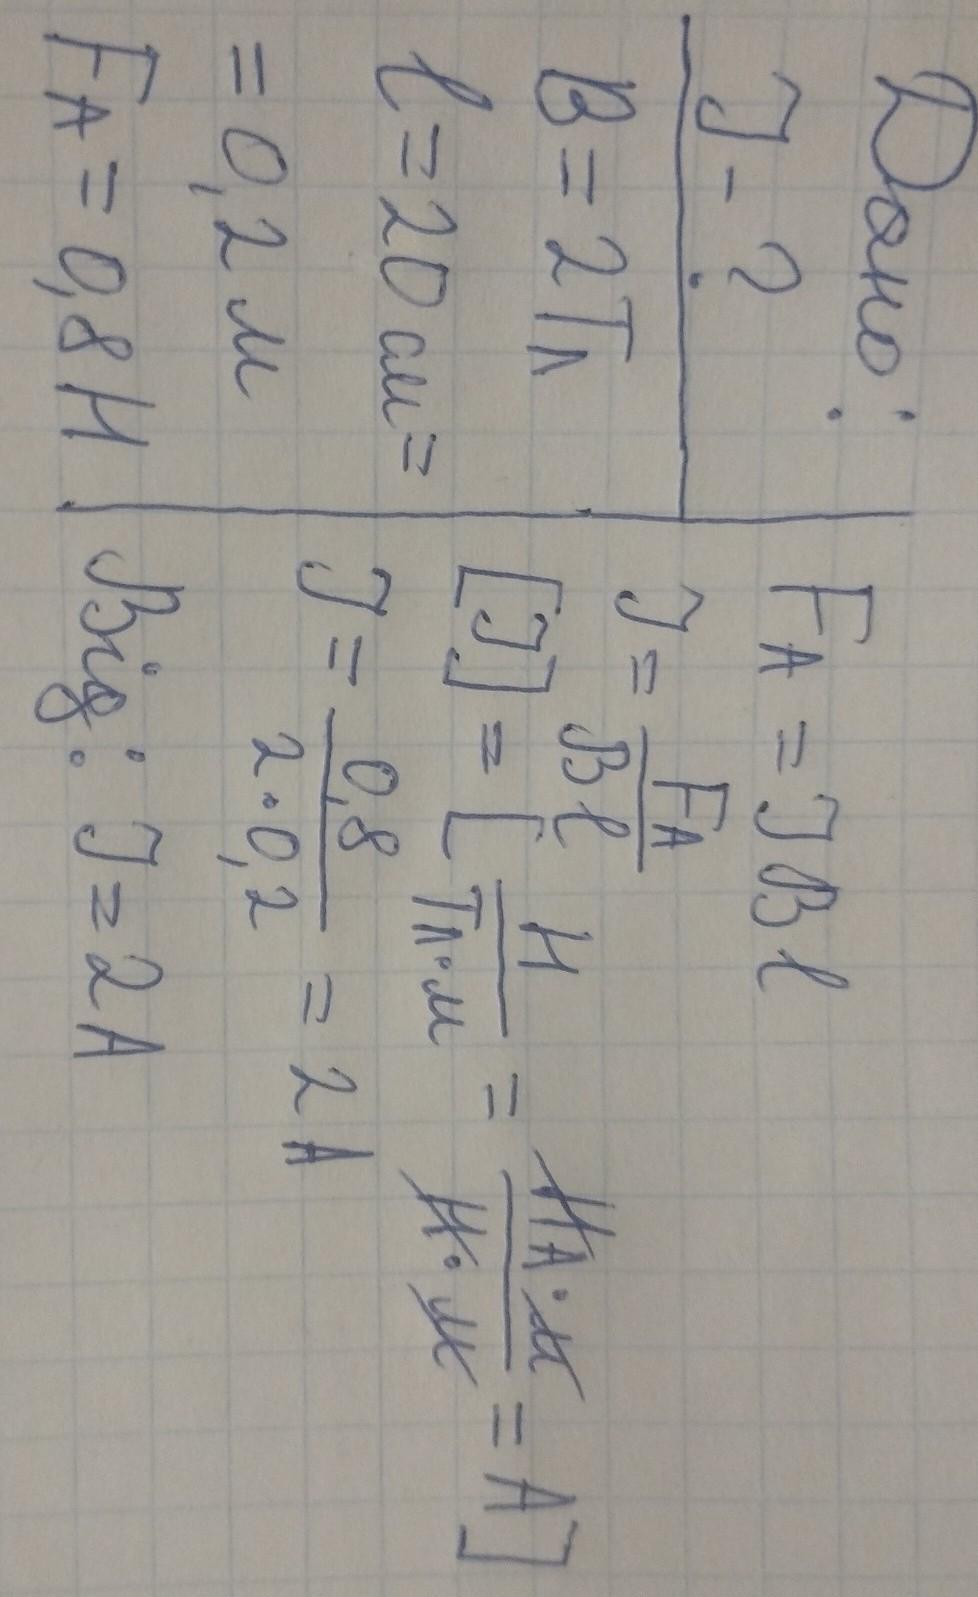 Дано:
I - ?
B = 2 Тл
l = 20 см =
= 0,2 м
FА = 0,8 Н
FА = I B l
I = FА / B l
[I] = [Н / Тл·м = Н А·м / Н·м = А]
I = 0,8 / 2·0,2 = 2 А
Від: I = 2 А